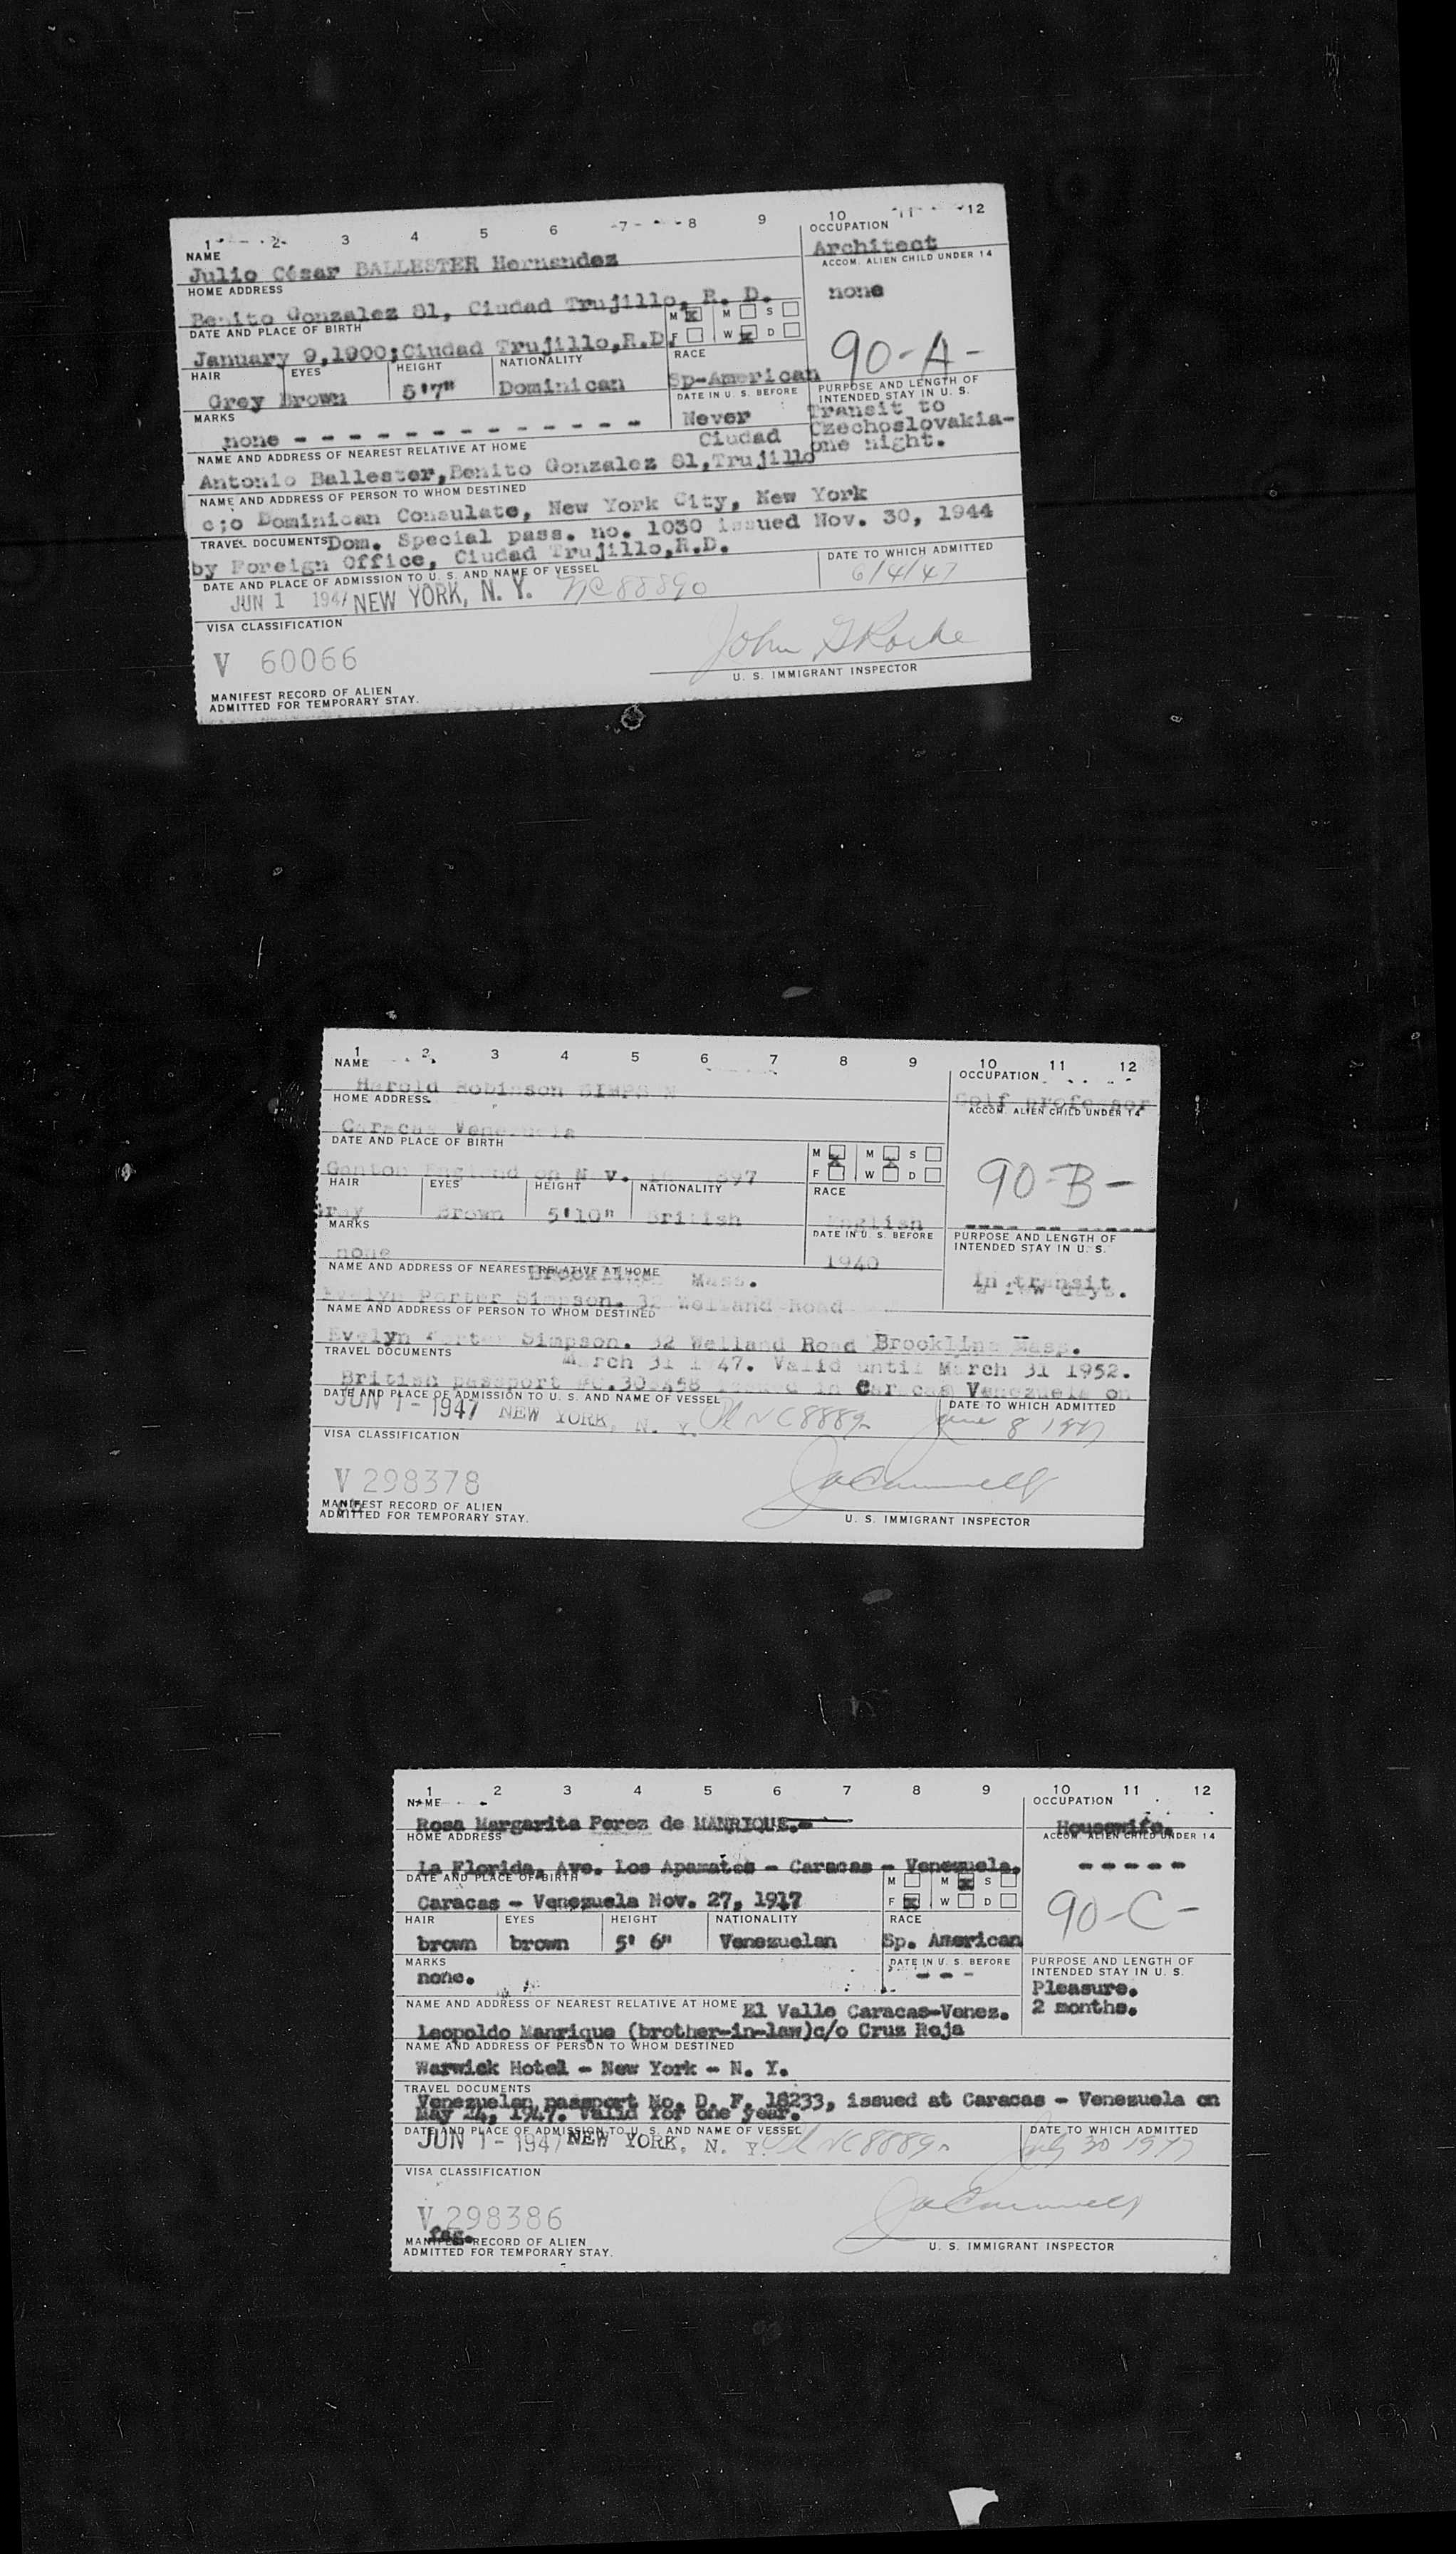 1 2 3 4 5 6 7 8 9 10 11 12
NAME
OCCUPATION
Julio César BALLESTER Hernandez
Architect
HOME ADDRESS
ACCOM. ALIEN CHILD UNDER 14
Benito Gonzalez 81, Ciudad Trujillo, R. D.
none
DATE AND PLACE OF BIRTH
M M S
January 9,1900;Ciudad Trujillo,R.D.
F W D
90-A-
HAIR EYES HEIGHT NATIONALITY RACE
Grey Brown 5'7" Dominican Sp-American
MARKS
DATE IN U. S. BEFORE
PURPOSE AND LENGTH OF
INTENDED STAY IN U. S.
none - - - - - - - - - - - - -
Never
Transit to
Czechoslovakia-
one night.
NAME AND ADDRESS OF NEAREST RELATIVE AT HOME
Ciudad
Antonio Ballester,Benito Gonzalez 81,Trujillo
NAME AND ADDRESS OF PERSON TO WHOM DESTINED
c;o Dominican Consulate, New York City, New York
TRAVEL DOCUMENTS Dom. Special pass. no. 1030 issued Nov. 30, 1944
by Foreign Office, Ciudad Trujillo,R.D.
DATE AND PLACE OF ADMISSION TO U. S. AND NAME OF VESSEL
DATE TO WHICH ADMITTED
JUN 1 1947 NEW YORK, N. Y. NC88890
6/4/47
VISA CLASSIFICATION
V 60066
U. S. IMMIGRANT INSPECTOR
MANIFEST RECORD OF ALIEN
ADMITTED FOR TEMPORARY STAY.
1 2 3 4 5 6 7 8 9 10 11 12
NAME
OCCUPATION
Harold Robinson SIMPSON
Golf professor
HOME ADDRESS
ACCOM. ALIEN CHILD UNDER 14
Caracas Venezuela
DATE AND PLACE OF BIRTH
M M S
F W D
90-B-
Ganton England on Nov. 1897
HAIR EYES HEIGHT NATIONALITY RACE
Gray Brown 5'10" British English
MARKS
DATE IN U. S. BEFORE
PURPOSE AND LENGTH OF
INTENDED STAY IN U. S.
none
1940
In transit
a few days.
NAME AND ADDRESS OF NEAREST RELATIVE AT HOME
Brookline Mass.
Evelyn Porter Simpson. 32 Welland Road
NAME AND ADDRESS OF PERSON TO WHOM DESTINED
Evelyn Porter Simpson. 32 Welland Road Brookline Mass.
TRAVEL DOCUMENTS
March 31 1947. Valid until March 31 1952.
British passport issued in Caracas Venezuela on
DATE AND PLACE OF ADMISSION TO U. S. AND NAME OF VESSEL
DATE TO WHICH ADMITTED
JUN 1 - 1947 NEW YORK, N. Y.
June 8 1947
VISA CLASSIFICATION
V 298378
MANIFEST RECORD OF ALIEN
ADMITTED FOR TEMPORARY STAY.
U. S. IMMIGRANT INSPECTOR
1 2 3 4 5 6 7 8 9 10 11 12
NAME
OCCUPATION
Rosa Margarita Perez de MANRIQUE.-
Housewife.
HOME ADDRESS
ACCOM. ALIEN CHILD UNDER 14
La Florida, Ave. Los Apamates - Caracas - Venezuela.
- - - - -
DATE AND PLACE OF BIRTH
M M S
Caracas - Venezuela Nov. 27, 1917
F W D
90-C-
HAIR EYES HEIGHT NATIONALITY RACE
brown brown 5' 6" Venezuelan Sp. American
MARKS
DATE IN U. S. BEFORE
PURPOSE AND LENGTH OF
INTENDED STAY IN U. S.
none.
- - -
Pleasure.
2 months.
NAME AND ADDRESS OF NEAREST RELATIVE AT HOME El Valle Caracas-Venez.
Leopoldo Manrique (brother-in-law)c/o Cruz Roja
NAME AND ADDRESS OF PERSON TO WHOM DESTINED
Warwick Hotel - New York - N. Y.
TRAVEL DOCUMENTS
Venezuelan passport No. D. F. 18233, issued at Caracas - Venezuela on
May 24, 1947. Valid for one year.
DATE AND PLACE OF ADMISSION TO U. S. AND NAME OF VESSEL
DATE TO WHICH ADMITTED
JUN 1 - 1947 NEW YORK, N. Y.
July 30 1947
VISA CLASSIFICATION
V 298386
feg.
MANIFEST RECORD OF ALIEN
ADMITTED FOR TEMPORARY STAY.
U. S. IMMIGRANT INSPECTOR